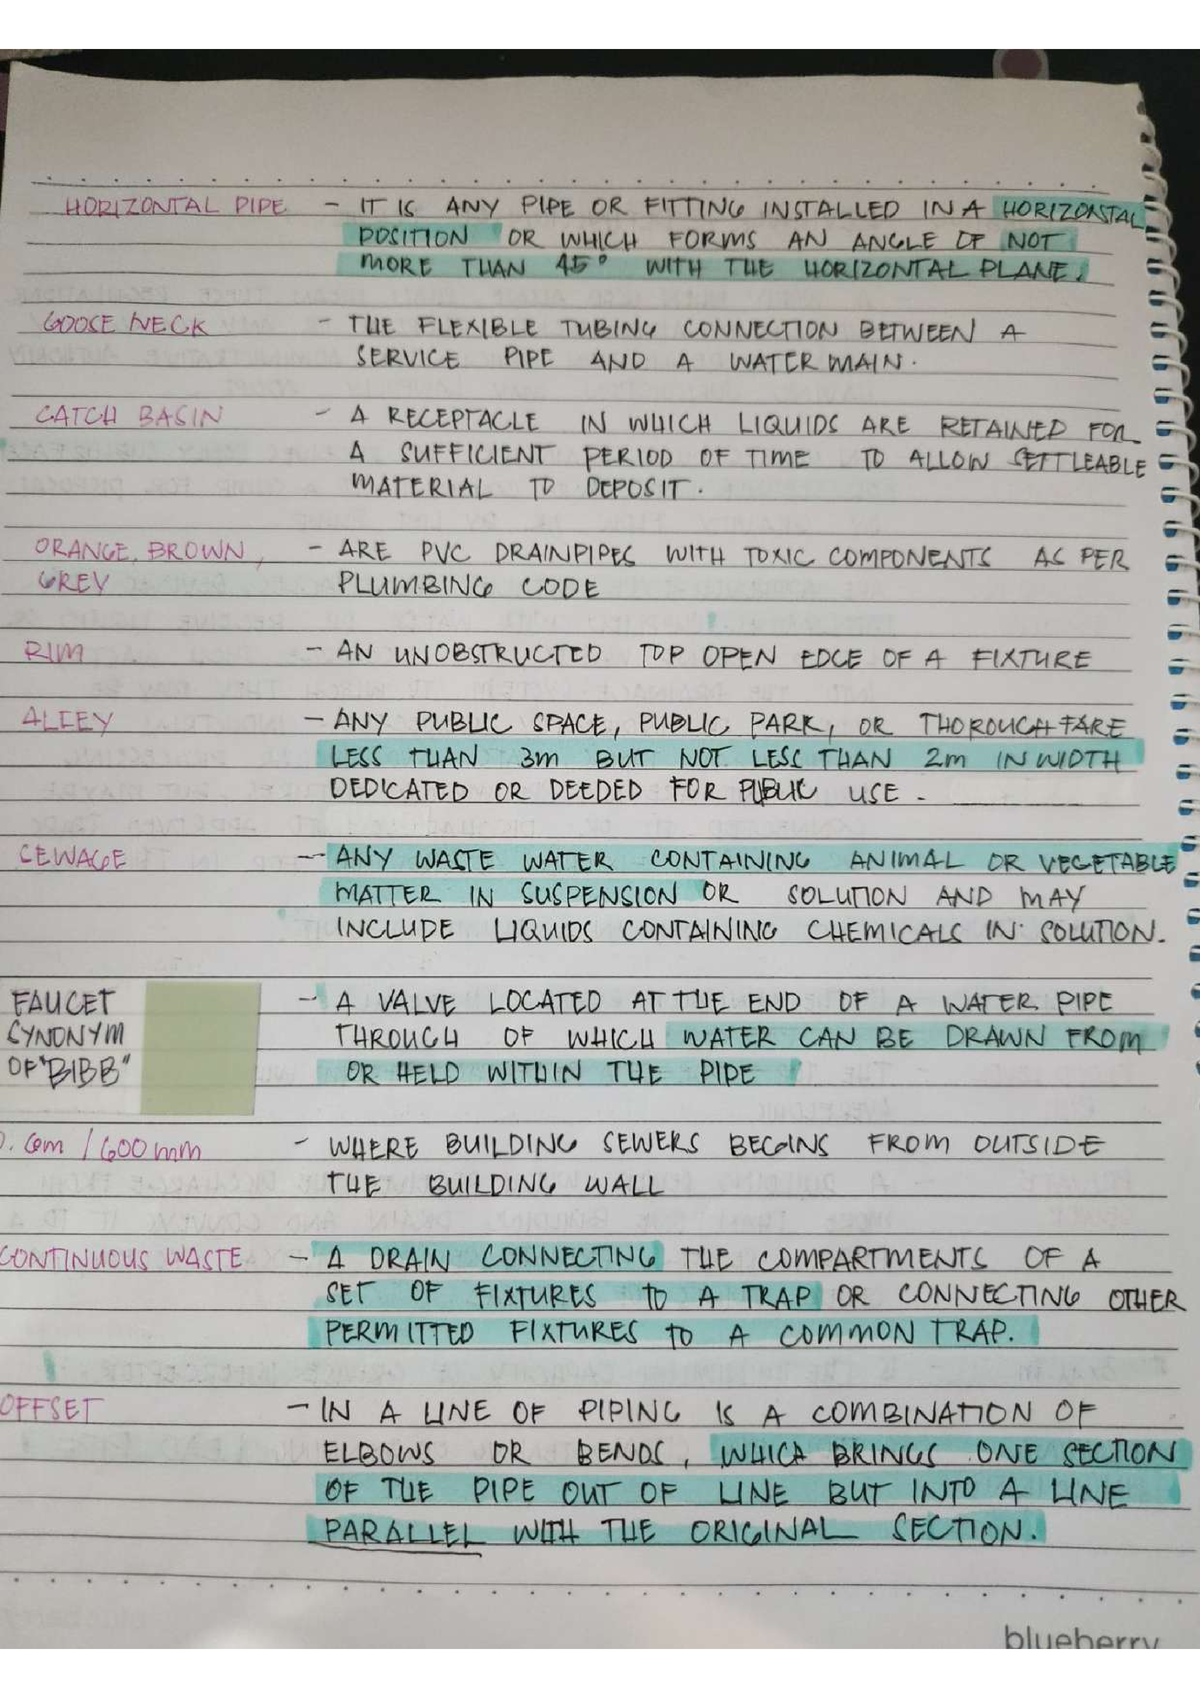 HORIZONTAL PIPE - IT IS ANY PIPE OR FITTING INSTALLED IN A HORIZONSTAL
POSITION OR WHICH FORMS AN ANGLE OF NOT
MORE THAN 45° WITH THE HORIZONTAL PLANE.
GOOSE NECK - THE FLEXIBLE TUBING CONNECTION BETWEEN A
SERVICE PIPE AND A WATER MAIN.
CATCH BASIN - A RECEPTACLE IN WHICH LIQUIDS ARE RETAINED FOR
A SUFFICIENT PERIOD OF TIME TO ALLOW SETTLEABLE
MATERIAL TO DEPOSIT.
ORANGE, BROWN, - ARE PVC DRAINPIPES WITH TOXIC COMPONENTS AS PER
GREY PLUMBING CODE
RIM - AN UNOBSTRUCTED TOP OPEN EDGE OF A FIXTURE
ALLEY - ANY PUBLIC SPACE, PUBLIC PARK, OR THOROUGHFARE
LESS THAN 3m BUT NOT LESS THAN 2m IN WIDTH
DEDICATED OR DEEDED FOR PUBLIC USE.
SEWAGE - ANY WASTE WATER CONTAINING ANIMAL OR VEGETABLE
MATTER IN SUSPENSION OR SOLUTION AND MAY
INCLUDE LIQUIDS CONTAINING CHEMICALS IN SOLUTION.
FAUCET - A VALVE LOCATED AT THE END OF A WATER PIPE
SYNONYM THROUGH OF WHICH WATER CAN BE DRAWN FROM
OF "BIBB" OR HELD WITHIN THE PIPE
0.6m / 600 mm - WHERE BUILDING SEWERS BEGINS FROM OUTSIDE
THE BUILDING WALL
CONTINUOUS WASTE - A DRAIN CONNECTING THE COMPARTMENTS OF A
SET OF FIXTURES to A TRAP OR CONNECTING OTHER
PERMITTED FIXTURES to A COMMON TRAP.
OFFSET - IN A LINE OF PIPING IS A COMBINATION OF
ELBOWS OR BENDS, WHICH BRINGS ONE SECTION
OF THE PIPE OUT OF LINE BUT INTO A LINE
PARALLEL WITH THE ORIGINAL SECTION.
blueberry